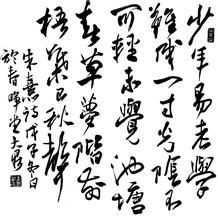 少年易老学
難成一寸光陰不
可輕未覺池塘
春草夢階前
梧葉已秋聲
朱熹詩戊子冬日
於春堂大